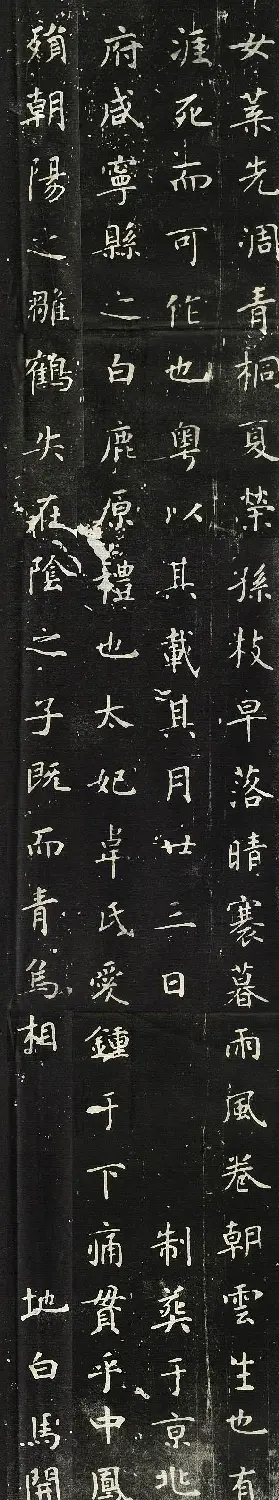 女葉先凋青桐夏榮孫枝早落晴褰暮雨風卷朝雲生也有
涯死而可作也粵以其載其月廿三日 制葬于京兆
府咸寧縣之白鹿原禮也太妃卓氏愛鍾于下痛貫乎中鳳
殞朝陽之雛鶴失在陰之子既而青烏相 地白馬開